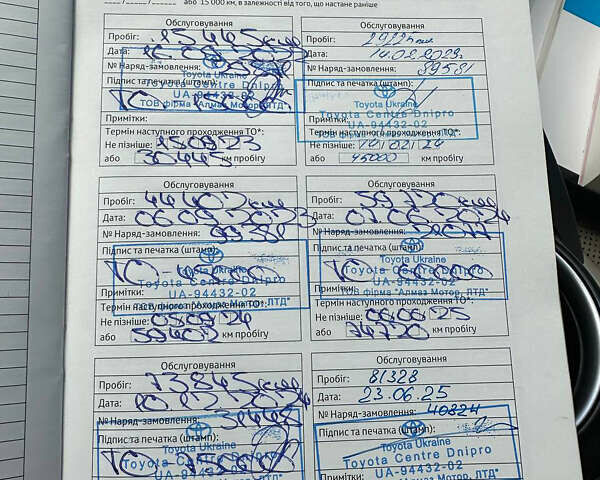 ___/_____/_____ або 15 000 км, в залежності від того, що настане раніше
Обслуговування
Пробіг: 15445 км
Дата:
№ Наряд-замовлення:
Підпис та печатка (штамп):
Toyota Ukraine
Toyota Centre Dnipro
UA-94432-02
ТОВ фірма "Алмаз Мотор, ЛТД"
Примітки:
Термін наступного проходження ТО*:
Не пізніше: 15.08.23
або 30445 км пробігу
Обслуговування
Пробіг: 29225 км
Дата: 14.02.2023
№ Наряд-замовлення: 89581
Підпис та печатка (штамп):
Toyota Ukraine
Toyota Centre Dnipro
UA-94432-02
ТОВ фірма "Алмаз Мотор, ЛТД"
Примітки:
Термін наступного проходження ТО*:
Не пізніше: 14.02.24
або 45000 км пробігу
Обслуговування
Пробіг: 44402 км
Дата: 06.09.2023
№ Наряд-замовлення: 99381
Підпис та печатка (штамп):
Toyota Ukraine
Toyota Centre Dnipro
UA-94432-02
ТОВ фірма "Алмаз Мотор, ЛТД"
Примітки:
Термін наступного проходження ТО*:
Не пізніше: 06.09.24
або 59402 км пробігу
Обслуговування
Пробіг: 59720 км
Дата: 07.06.2024
№ Наряд-замовлення:
Підпис та печатка (штамп):
Toyota Ukraine
Toyota Centre Dnipro
UA-94432-02
ТОВ фірма "Алмаз Мотор, ЛТД"
Примітки:
Термін наступного проходження ТО*:
Не пізніше: 06.06.25
або 74720 км пробігу
Обслуговування
Пробіг: 73845 км
Дата: 10.12.2024
№ Наряд-замовлення: 31445
Підпис та печатка (штамп):
Toyota Ukraine
Toyota Centre Dnipro
UA-94432-02
Обслуговування
Пробіг: 81328
Дата: 23.06.25
№ Наряд-замовлення: 40824
Підпис та печатка (штамп):
Toyota Ukraine
Toyota Centre Dnipro
UA-94432-02
ТОВ фірма "Алмаз Мотор, ЛТД"